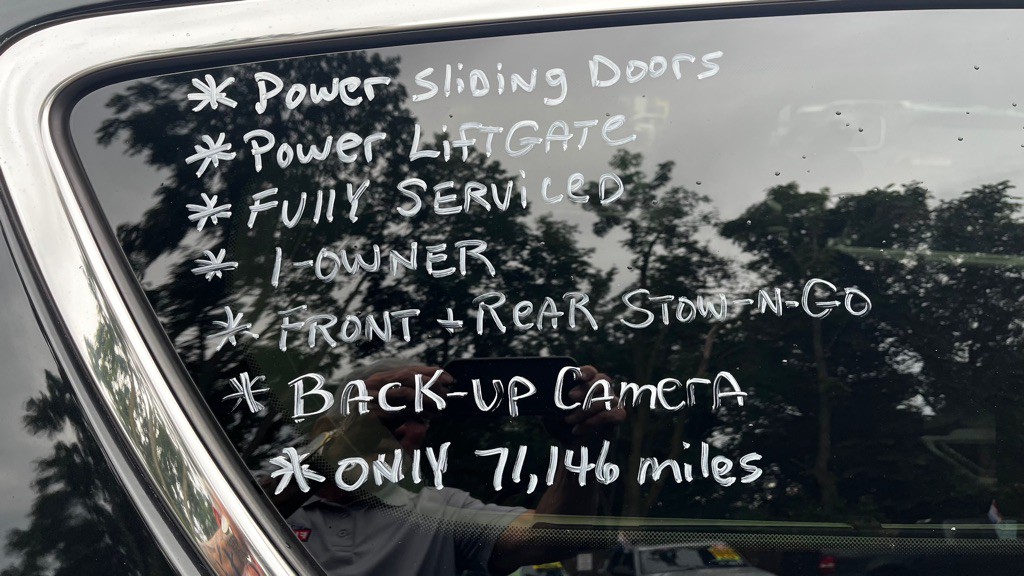 * Power Sliding Doors
* Power LiftGATe
* FUllY SERViCED
* 1-OWNER
* FRONT + REAR STOW-N-GO
* BACK-UP CamerA
* ONlY 71,146 miles